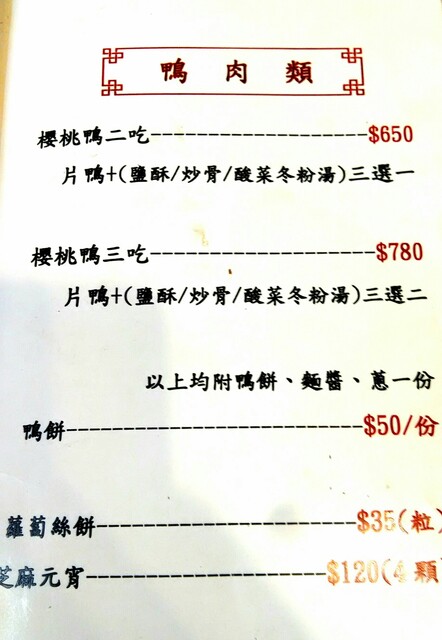 鴨肉類
櫻桃鴨二吃--------------------$650
片鴨+(鹽酥/炒骨/酸菜冬粉湯)三選一
櫻桃鴨三吃--------------------$780
片鴨+(鹽酥/炒骨/酸菜冬粉湯)三選二
以上均附鴨餅、麵醬、蔥一份
鴨餅---------------------------$50/份
蘿蔔絲餅-----------------------$35(粒)
芝麻元宵---------------------$120(4顆